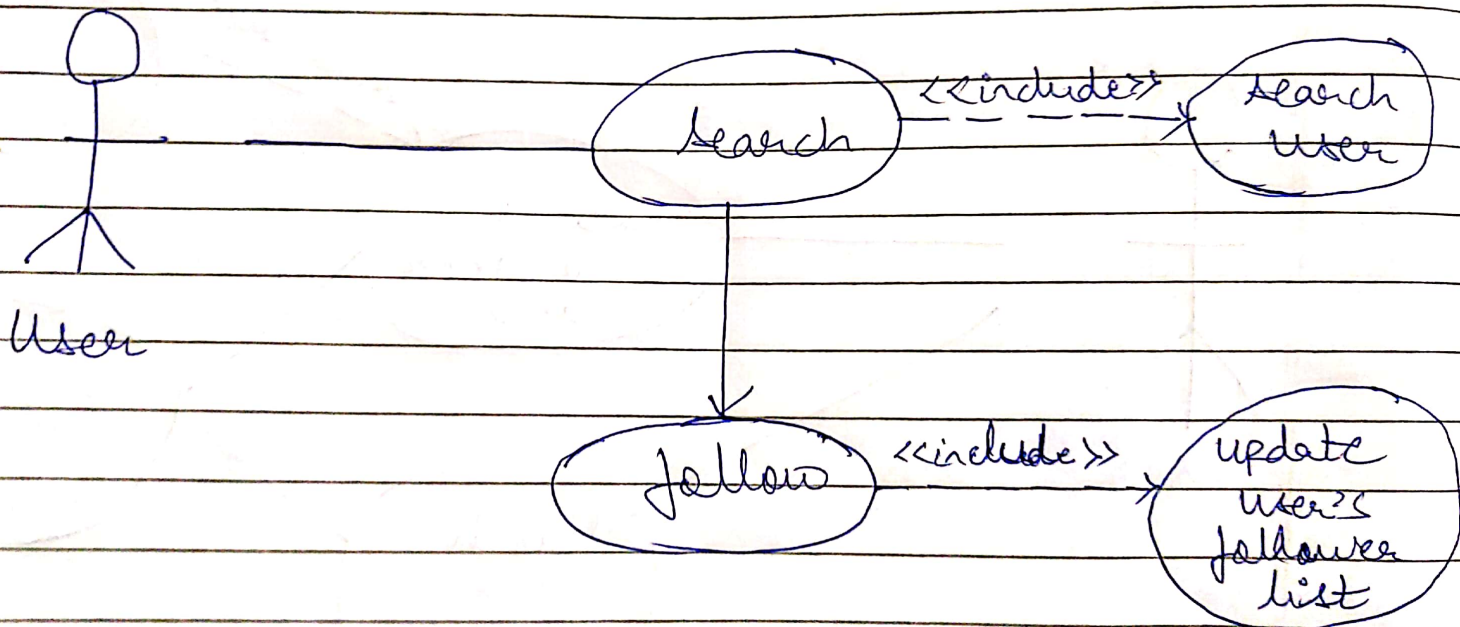 search
<<include>>
search
user
User
follow
<<include>>
update
user's
follower
list